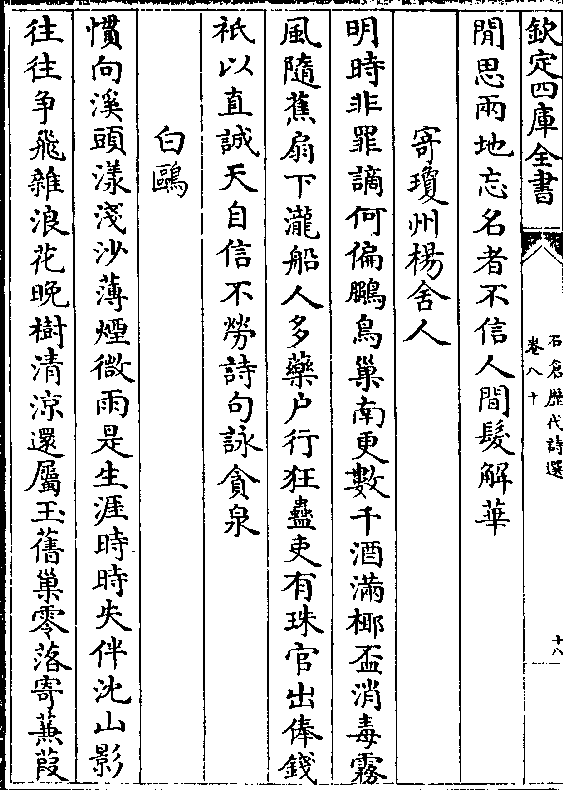 欽定四庫全書
石倉歷代詩選
卷八十
十八
閒思兩地忘名者不信人間髮解華
寄瓊州楊舍人
明時非罪謫何偏鵩鳥巢南更數千酒滿椰盃消毒霧
風隨蕉扇下瀧船人多藥户行狂蠱吏有珠官出俸錢
祇以直誠天自信不勞詩句詠貪泉
白鷗
慣向溪頭漾淺沙薄煙微雨是生涯時時失伴沈山影
往往争飛雜浪花晚樹清涼還屬玉舊巢零落寄蒹葭